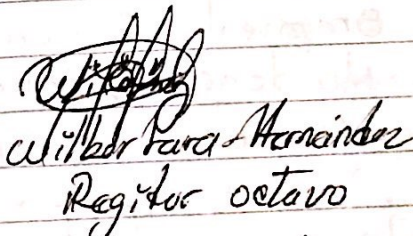 Wilber Lara Hernández
Regitor octavo